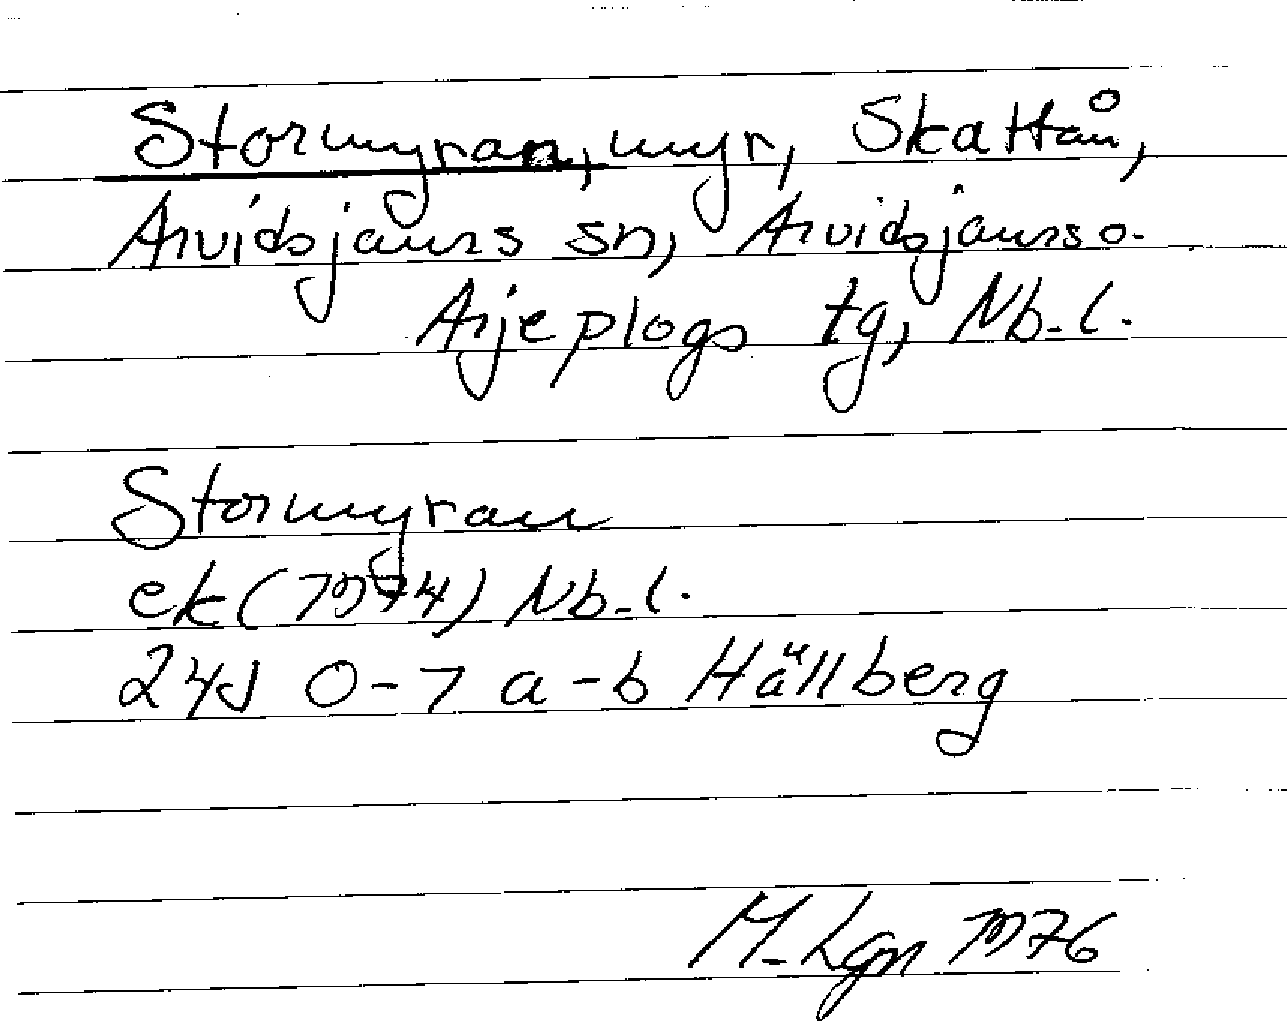 Stormyran, myr, Skattån,
Arvidsjaurs sn, Arvidsjaurs o.
Arjeplogs tg, Nb. l.
Stormyran
ek (1974) Nb. l.
24J 0-1 a-b Hällberg
M. Lgn 1976